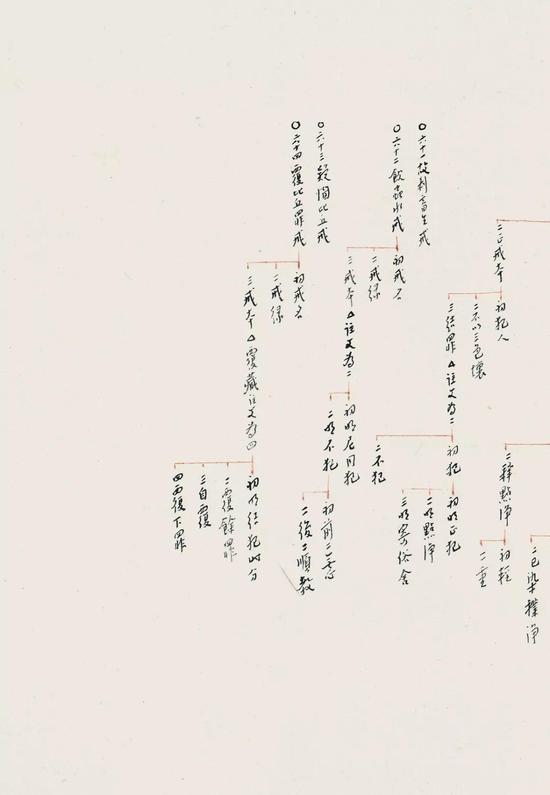 二正戒本
初犯人
二不以三色壞
三結罪△註文為二
初犯
二不犯
初明正犯
二明點淨
三明寄俗舍
二釋點淨
初輕
二重
二已染樸淨
〇六十一故刹畜生戒
〇六十二飲虫水戒
初戒名
二戒緣
三戒本△註文為二
初明尼同犯
二明不犯
初前二無心
二後二順教
〇六十三疑惱比丘戒
〇六十四覆比丘罪戒
初戒名
二戒緣
三戒本△覆藏註文為四
初明結犯時分
二覆餘罪
三自覆
四覆下罪